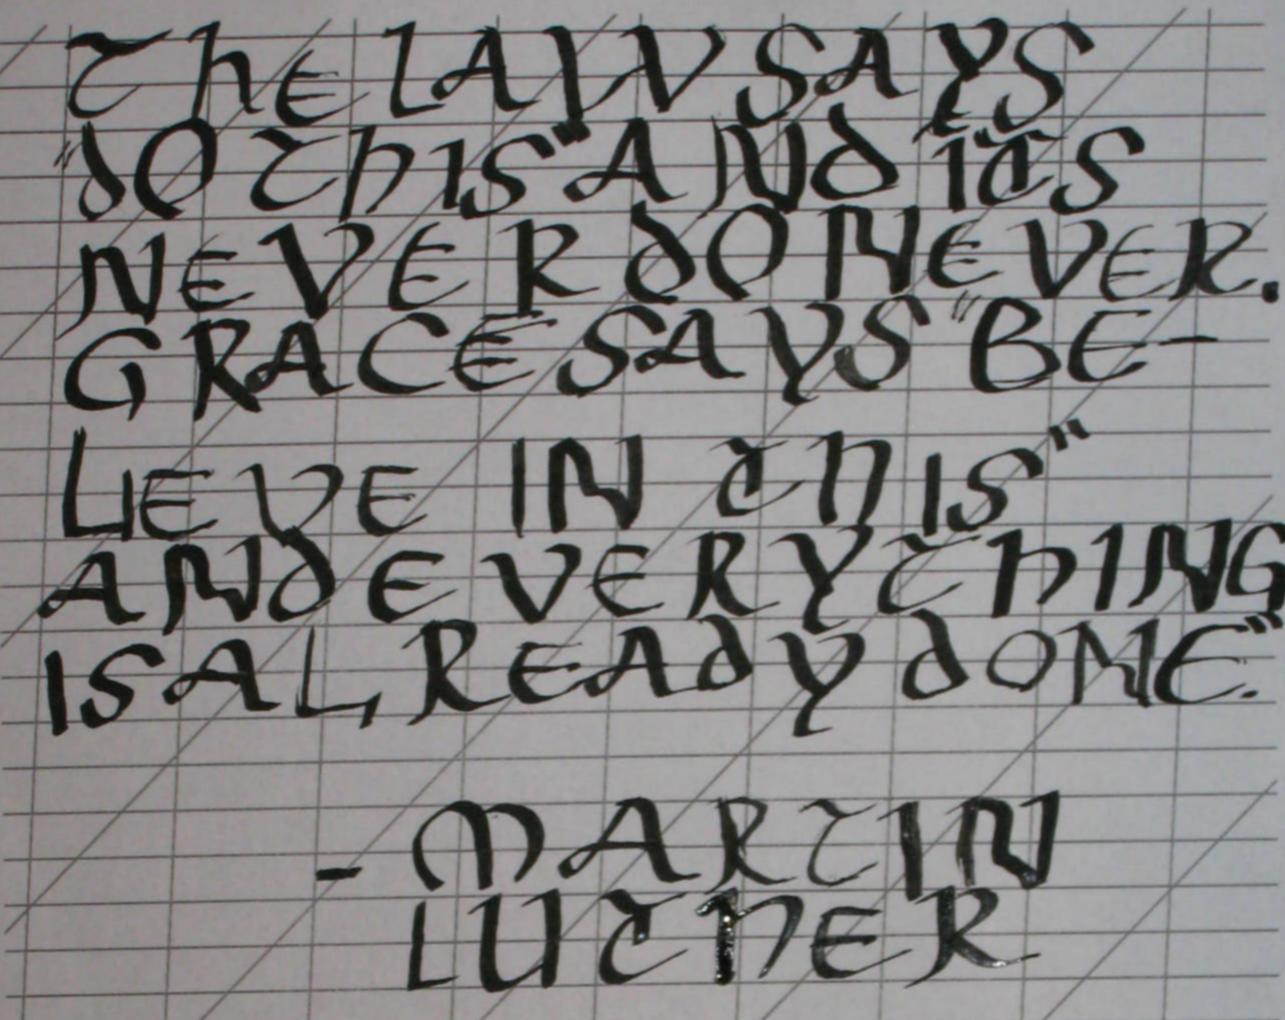 The LAW SAYS
"dO ThIS" ANd ITS
NEVER dO NEVER.
GRACE SAYS "BE-
LIEVE IN ThIS"
ANd EVERYThING
IS ALREAdY dONE".
- MARTIN
LUTHER